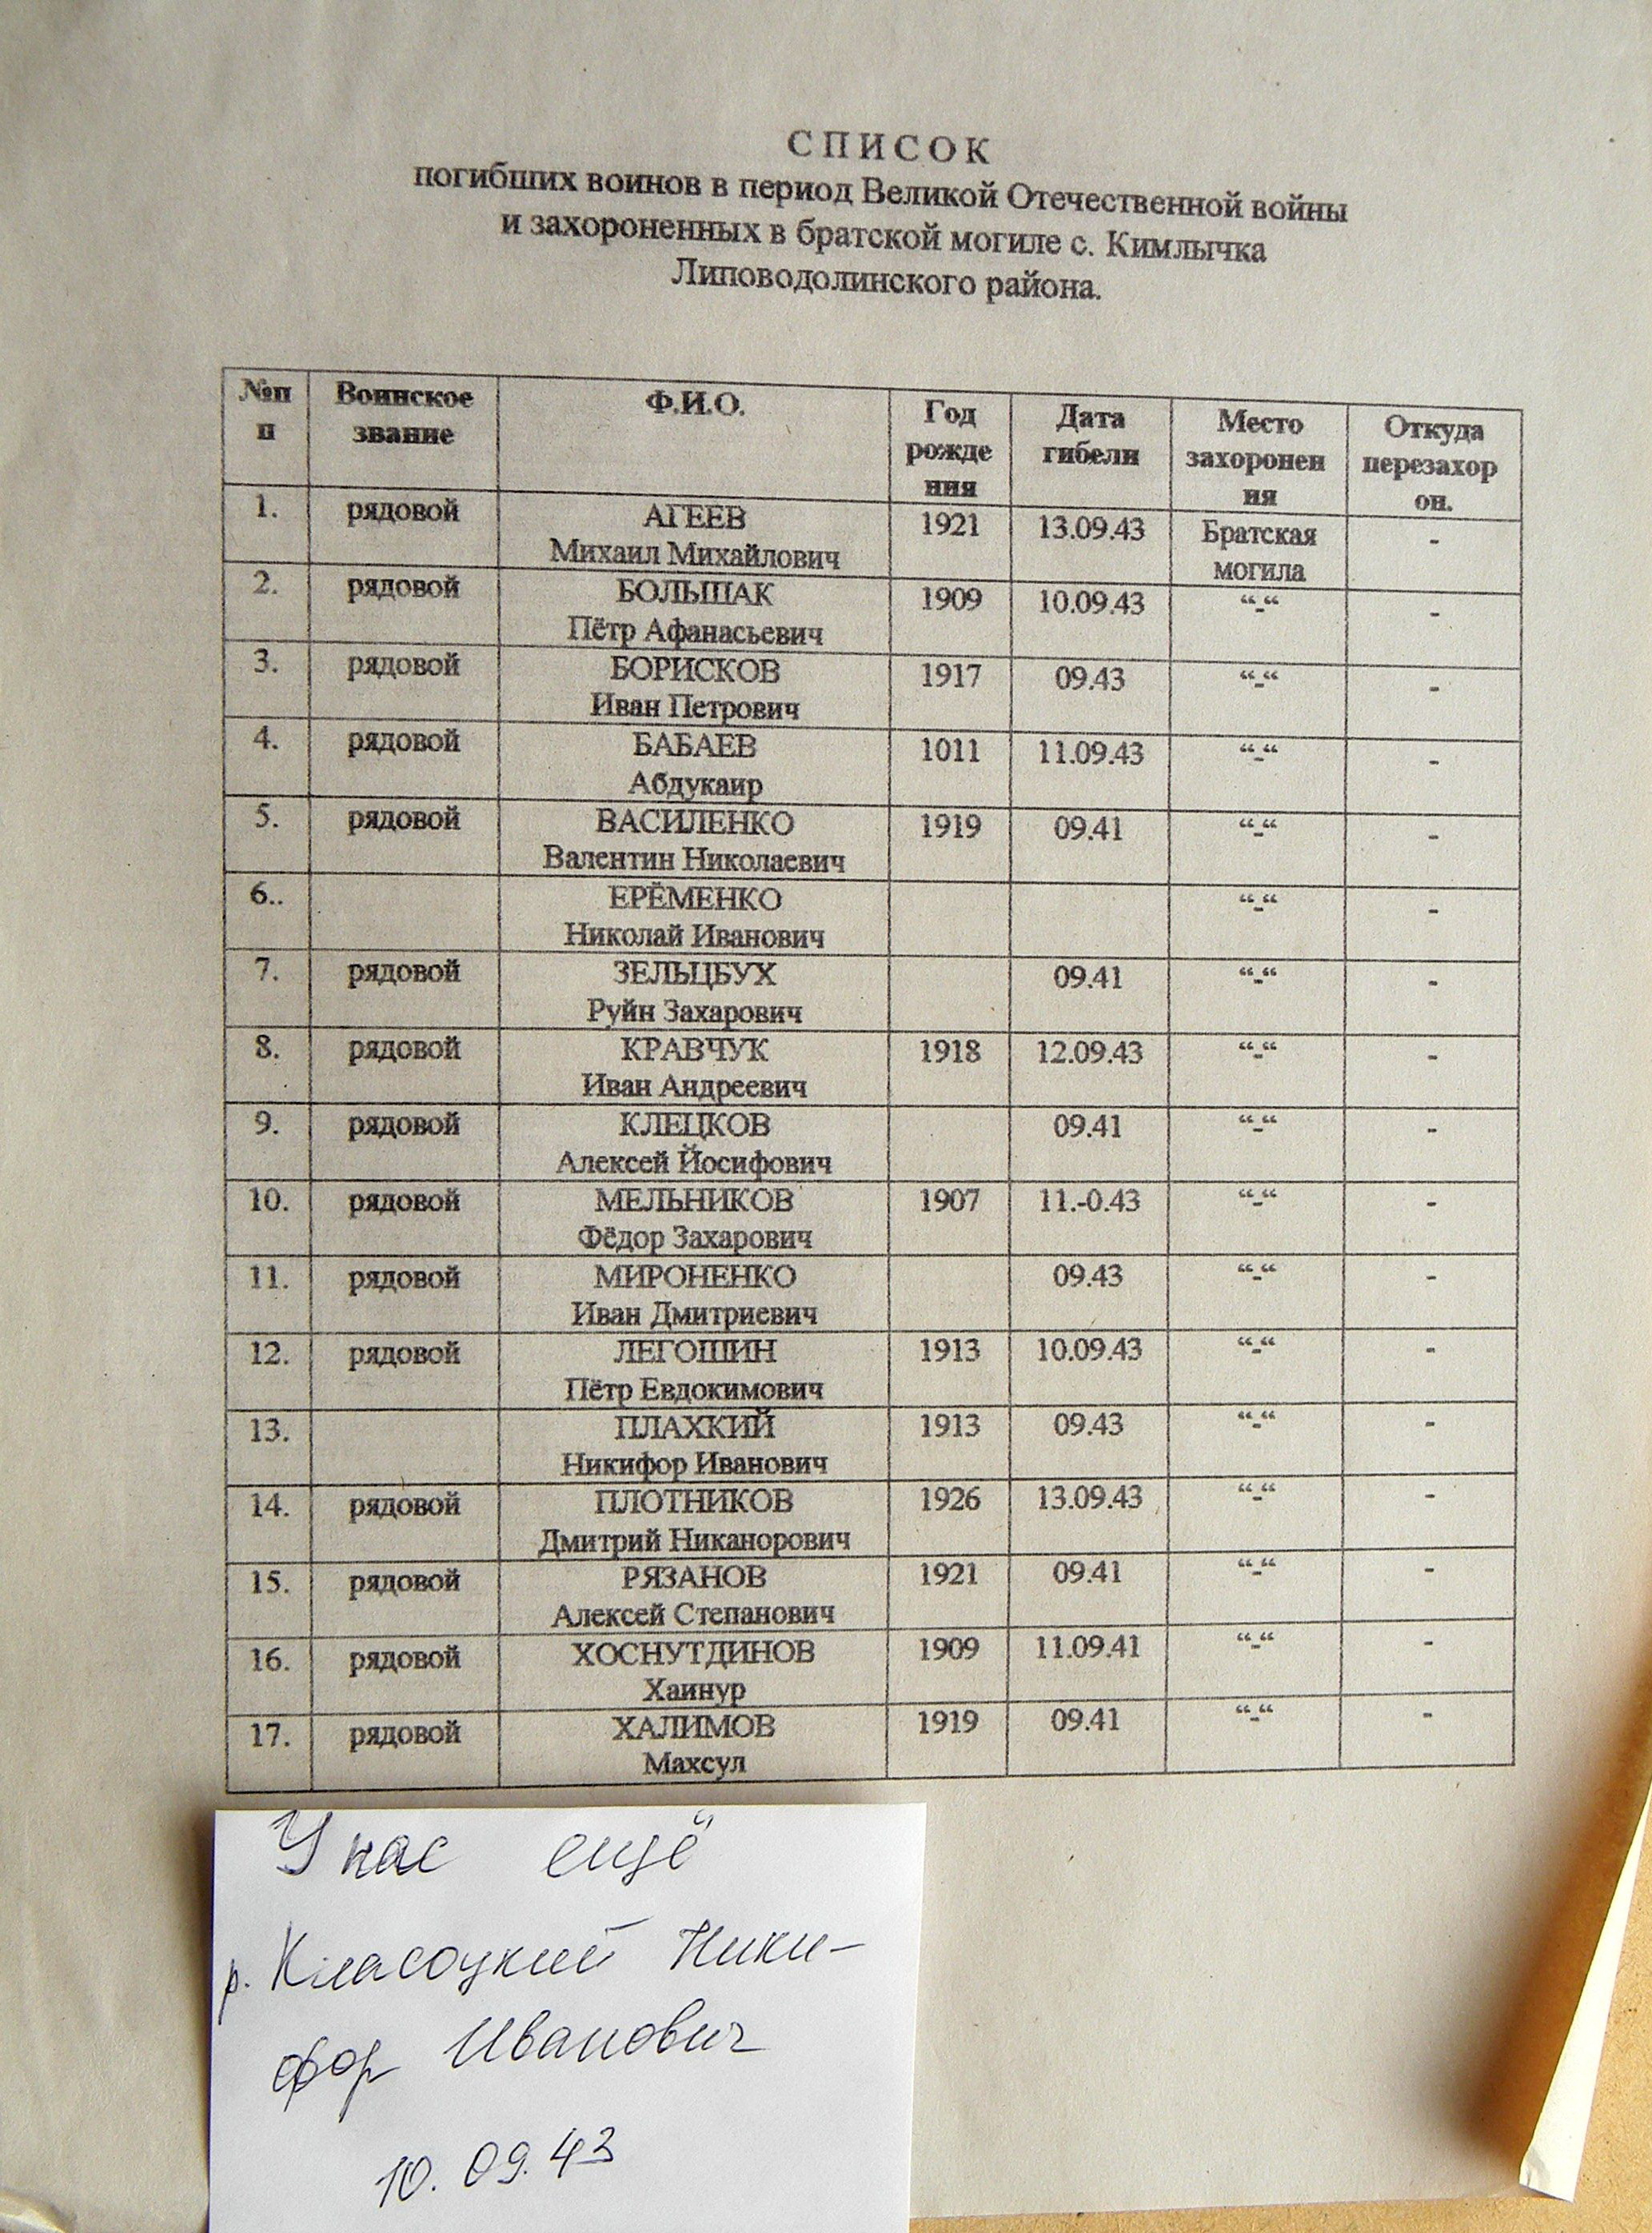 СПИСОК
погибших воинов в период Великой Отечественной войны
и захороненных в братской могиле с. Кимлычка
Липоводолинского района.
№п Воинское Ф.И.О. Год Дата Место Откуда
п звание рожде гибели захоронен перезахор
ния ия он.
1. рядовой АГЕЕВ 1921 13.09.43 Братская -
Михаил Михайлович могила
2. рядовой БОЛЬШАК 1909 10.09.43 “-“ -
Пётр Афанасьевич
3. рядовой БОРИСКОВ 1917 09.43 “-“ -
Иван Петрович
4. рядовой БАБАЕВ 1011 11.09.43 “-“ -
Абдукаир
5. рядовой ВАСИЛЕНКО 1919 09.41 “-“ -
Валентин Николаевич
6.. ЕРЁМЕНКО “-“ -
Николай Иванович
7. рядовой ЗЕЛЬЦБУХ 09.41 “-“ -
Руйн Захарович
8. рядовой КРАВЧУК 1918 12.09.43 “-“ -
Иван Андреевич
9. рядовой КЛЕЦКОВ 09.41 “-“ -
Алексей Йосифович
10. рядовой МЕЛЬНИКОВ 1907 11.-0.43 “-“ -
Фёдор Захарович
11. рядовой МИРОНЕНКО 09.43 “-“ -
Иван Дмитриевич
12. рядовой ЛЕГОШИН 1913 10.09.43 “-“ -
Пётр Евдокимович
13. ПЛАХКИЙ 1913 09.43 “-“ -
Никифор Иванович
14. рядовой ПЛОТНИКОВ 1926 13.09.43 “-“ -
Дмитрий Никанорович
15. рядовой РЯЗАНОВ 1921 09.41 “-“ -
Алексей Степанович
16. рядовой ХОСНУТДИНОВ 1909 11.09.41 “-“ -
Хаинур
17. рядовой ХАЛИМОВ 1919 09.41 “-“ -
Махсул
У нас ещё
р. Класоцкий Ники-
фор Иванович
10.09.43